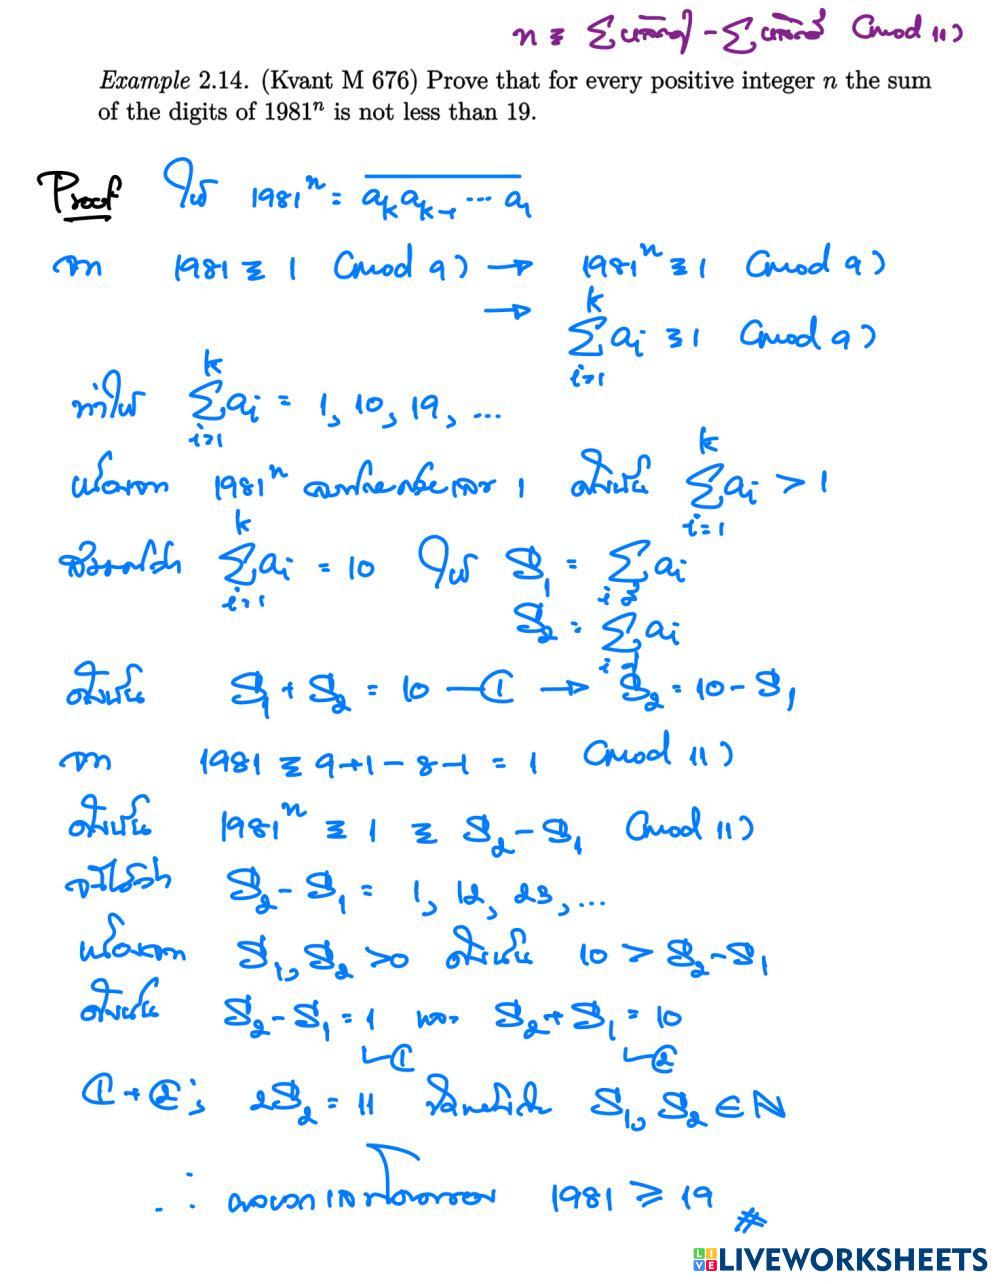 n ≡ Σเลขคู่ - Σเลขคี่ (mod 11)
Example 2.14. (Kvant M 676) Prove that for every positive integer n the sum
of the digits of 1981ⁿ is not less than 19.
Proof ให้ 1981ⁿ = \overline{aₖaₖ₋₁...a₁}
จาก 1981 ≡ 1 (mod 9) → 1981ⁿ ≡ 1 (mod 9)
→ \sum_{i=1}^{k} aᵢ ≡ 1 (mod 9)
ทำให้ \sum_{i=1}^{k} aᵢ = 1, 10, 19, ...
เนื่องจาก 1981ⁿ 1 ดังนั้น \sum_{i=1}^{k} aᵢ > 1
\sum_{i=1}^{k} aᵢ = 10 ให้ S₁ = \sum aᵢ
S₂ = \sum aᵢ
ดังนั้น S₁ + S₂ = 10 — ① → S₂ = 10 - S₁
จาก 1981 ≡ 9+1-8-1 = 1 (mod 11)
ดังนั้น 1981ⁿ ≡ 1 ≡ S₂ - S₁ (mod 11)
จะได้ว่า S₂ - S₁ = 1, 12, 23, ...
เนื่องจาก S₁, S₂ > 0 ดังนั้น 10 > S₂ - S₁
ดังนั้น S₂ - S₁ = 1 และ S₂ + S₁ = 10
① ②
① + ②; 2S₂ = 11 S₁, S₂ ∈ ℕ
∴ 1981 ≥ 19 #
LIVEWORKSHEETS